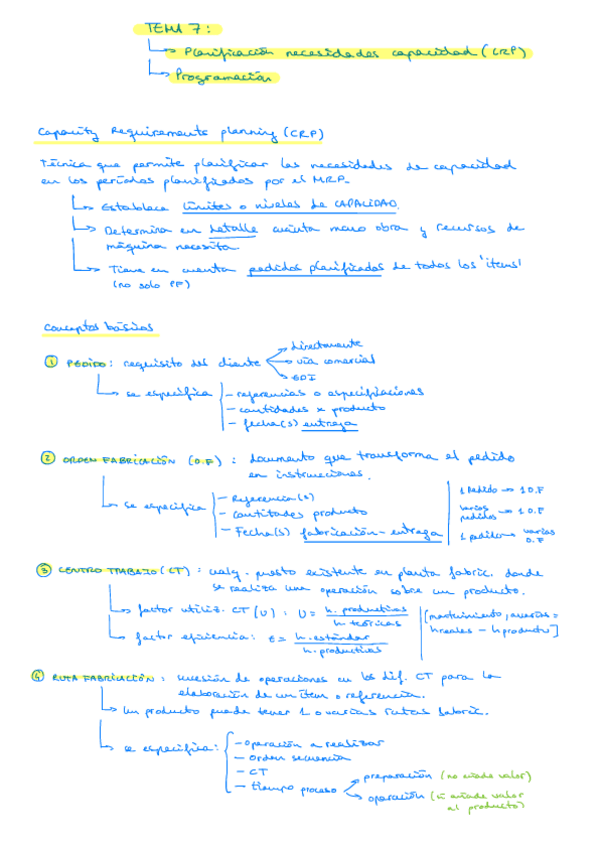 TEMA 7:
Planificación necesidades capacidad (CRP)
Programación
Capacity Requirements planning (CRP)
Técnica que permite planificar las necesidades de capacidad
en los períodos planificados por el MRP.
Establece límites o niveles de CAPACIDAD.
Determina en detalle cuánta mano obra y recursos de
máquina necesita.
Tiene en cuenta pedidos planificados de todos los 'items'
(no solo PF)
Conceptos básicos
① PEDIDO: requisito del cliente
directamente
vía comercial
EDI
se especifica
- referencias o especificaciones
- cantidades x producto
- fecha(s) entrega
② ORDEN FABRICACIÓN (O.F): documento que transforma el pedido
en instrucciones.
se especifica
- Referencia(s)
- Cantidades producto
- Fecha(s) fabricación - entrega
1 Pedido → 1 O.F
varios pedidos → 1 O.F
1 pedido → varias O.F
③ CENTRO TRABAJO (CT): cualq. puesto existente en planta fabric. donde
se realiza una operación sobre un producto.
factor utiliz. CT (U): U = h. productivas / h teóricas
[mantenimiento, averías =
h reales - h product.]
factor eficiencia: E = h. estándar / h. productivas
④ RUTA FABRICACIÓN: sucesión de operaciones en los dif. CT para la
elaboración de un ítem o referencia.
Un producto puede tener 1 o varias rutas fabric.
se especifica:
- Operación a realizar
- Orden secuencia
- CT
- tiempo proceso
preparación (no añade valor)
operación (sí añade valor
al producto)